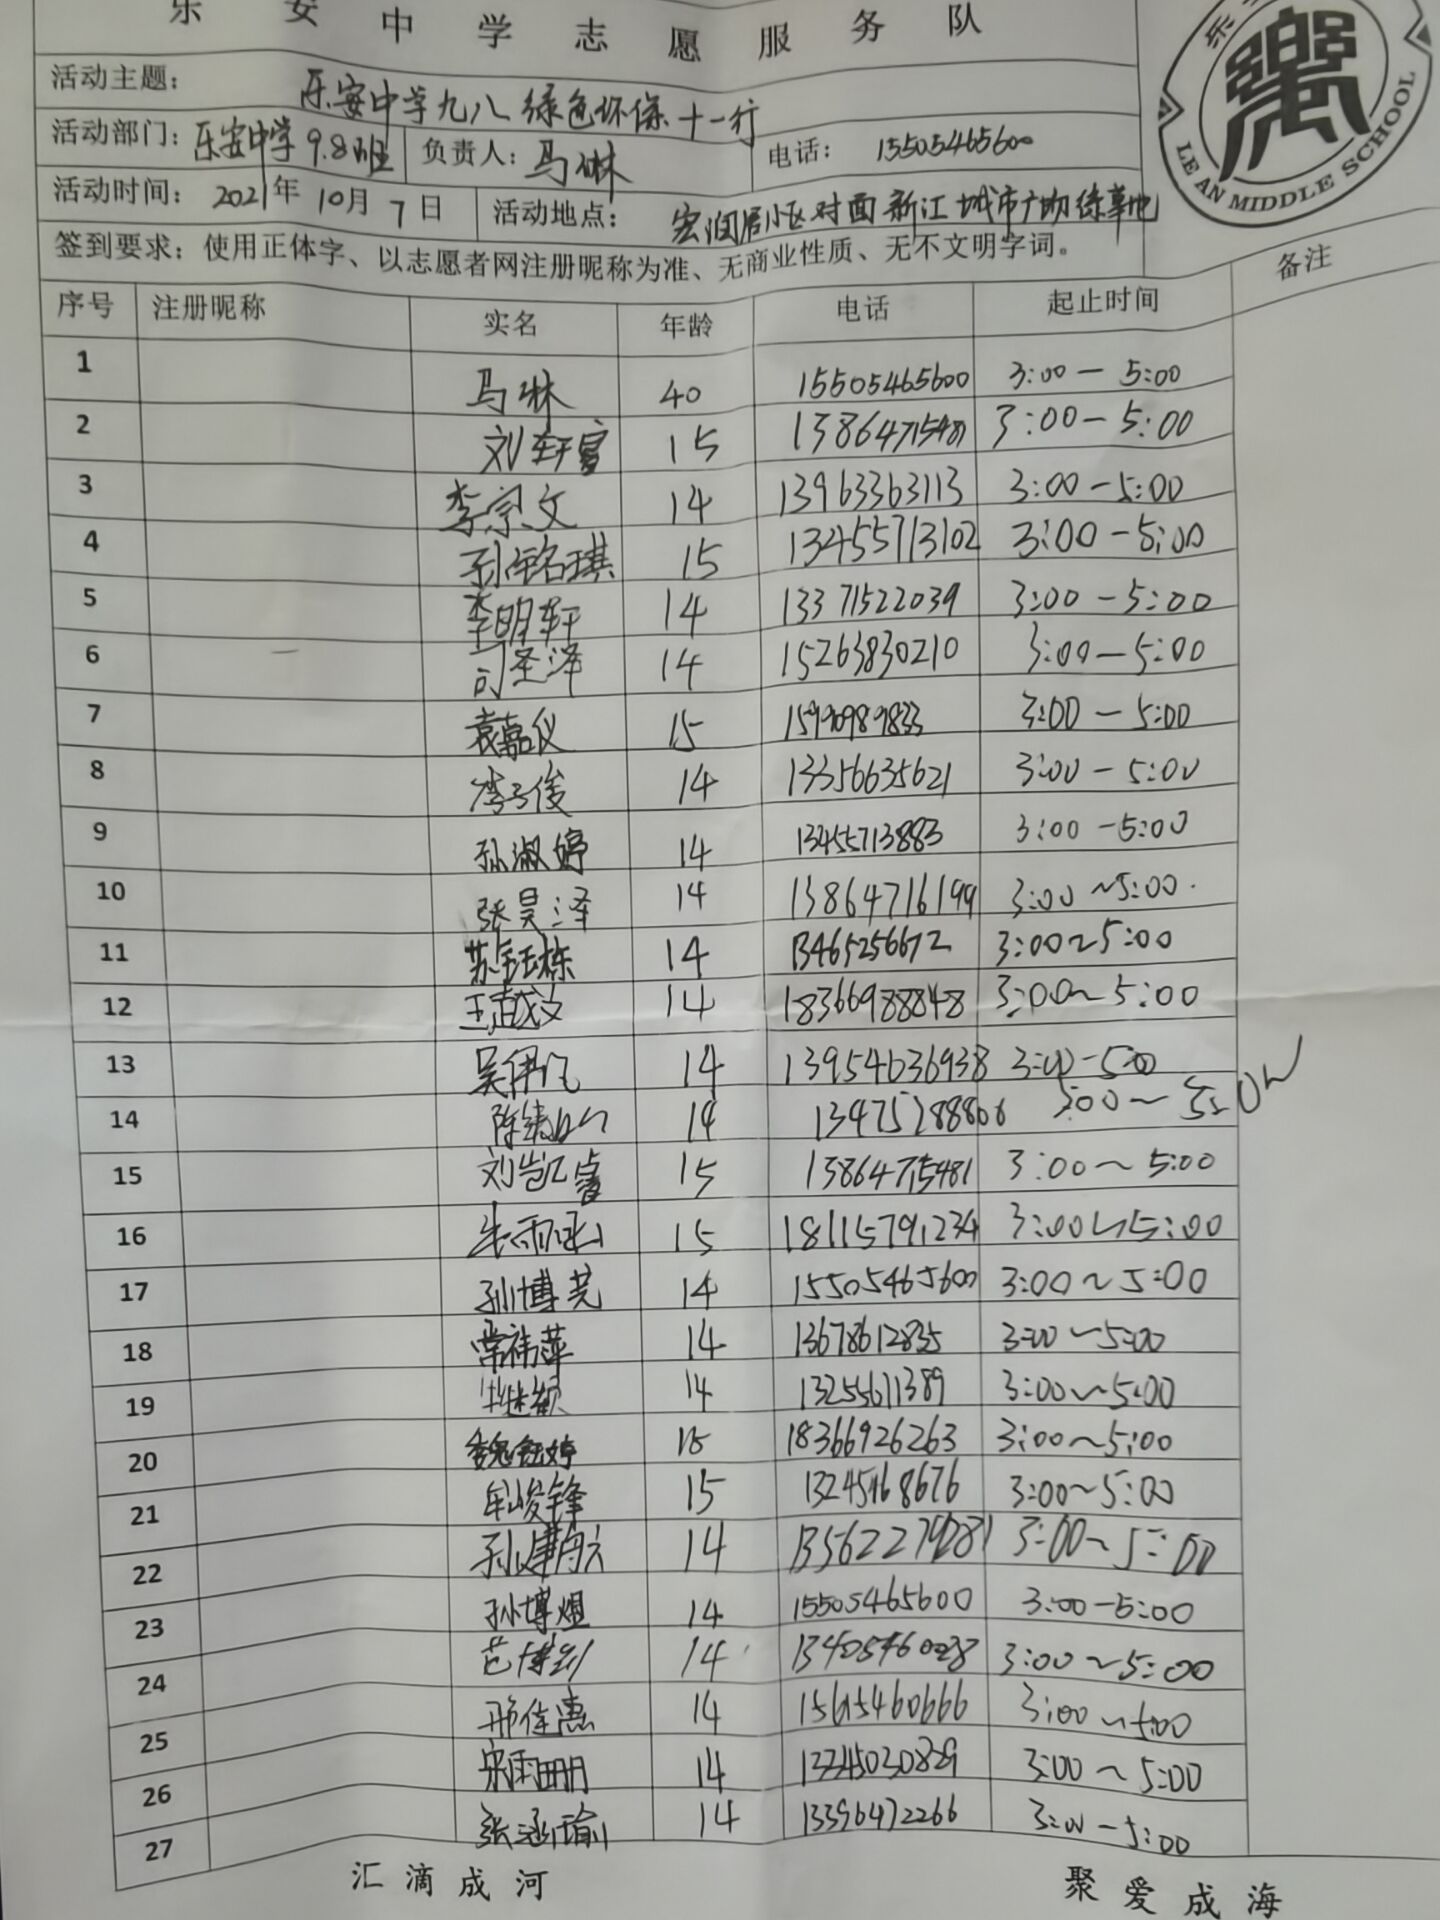 乐安中学志愿服务队
LE AN MIDDLE SCHOOL
活动主题: 乐安中学九八绿色环保十一行
活动部门: 乐安中学9.8班 负责人: 马琳 电话: 15505465600
活动时间: 2021年10月7日 活动地点: 宏润居小区对面新江城市广场绿草地
签到要求: 使用正体字、以志愿者网注册昵称为准、无商业性质、无不文明字词。
序号 注册昵称 实名 年龄 电话 起止时间 备注
1 马琳 40 15505465600 3:00—5:00
2 15 13864715481 3:00—5:00
3 李宗文 14 13963363113 3:00—5:00
4 孙铭琪 15 13455713102 3:00—5:00
5 李明轩 14 13371522039 3:00—5:00
6 司圣泽 14 15263830210 3:00—5:00
7 袁嘉仪 15 3:00—5:00
8 李子俊 14 13356635621 3:00—5:00
9 孙淑婷 14 13455713883 3:00—5:00
10 张昊泽 14 13864716199 3:00~5:00
11 苏钰栋 14 13465256672 3:00~5:00
12 王越文 14 18366988848 3:00~5:00
13 吴伊凡 14 13954636938 3:00-5:00
14 14 13475288806 3:00~5:00
15 15 13864715481 3:00~5:00
16 15 18115791234 3:00~5:00
17 孙博芫 14 15505465600 3:00~5:00
18 常祎萍 14 13678612835 3:00~5:00
19 14 13255611389 3:00~5:00
20 魏钰婷 15 18366926263 3:00~5:00
21 牟峻锋 15 3:00~5:00
22 孙建航 14 3:00~5:00
23 孙博煜 14 15505465600 3:00-5:00
24 14 3:00~5:00
25 邢佳惠 14 15615460666 3:00~5:00
26 宋雨珊 14 3:00~5:00
27 张涵瑜 14 13396472266 3:00-5:00
汇滴成河 聚爱成海